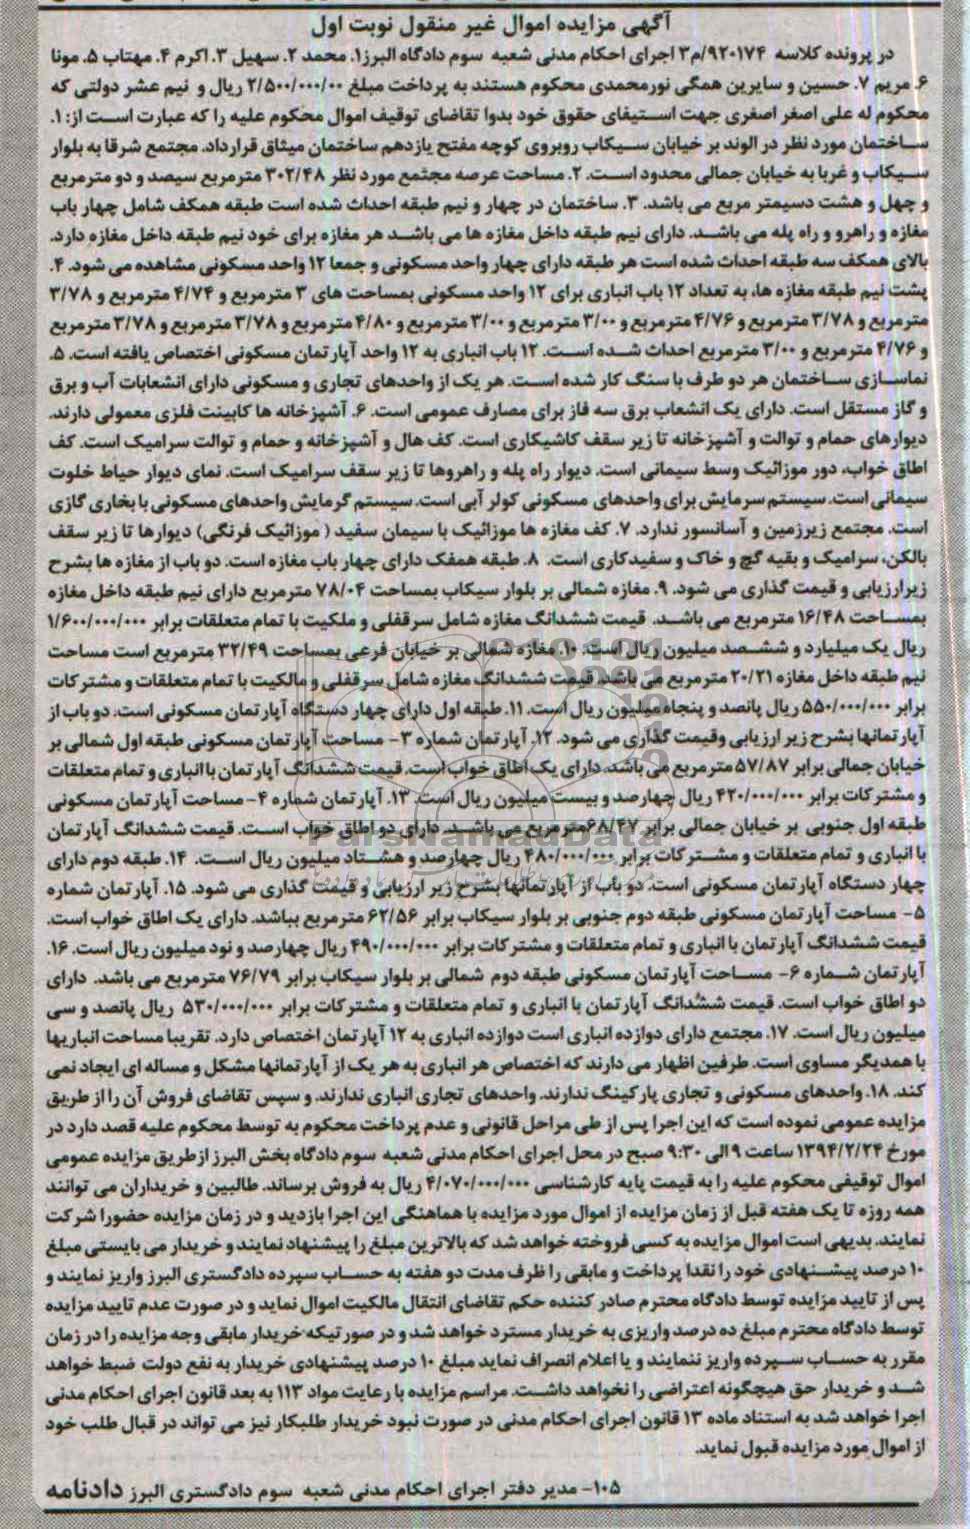 آگهی مزایده اموال غیر منقول نوبت اول
در پرونده کلاسه ۹۲۰۱۷۴/م۳ اجرای احکام مدنی شعبه سوم دادگاه البرز۱. محمد ۲. سهیل ۳. اکرم ۴. مهتاب ۵. مونا
۶. مریم ۷. حسین و سایرین همگی نورمحمدی محکوم هستند به پرداخت مبلغ ۲/۵۰۰/۰۰۰/۰۰ ریال و نیم عشر دولتی که
محکوم له علی اصغر اصغری جهت استیفای حقوق خود بدوا تقاضای توقیف اموال محکوم علیه را که عبارت است از: ۱.
ساختمان مورد نظر در الوند بر خیابان سیکاب روبروی کوچه مفتح یازدهم ساختمان میثاق قرارداد. مجتمع شرقا به بلوار
سیکاب و غربا به خیابان جمالی محدود است. ۲. مساحت عرصه مجتمع مورد نظر ۳۰۲/۴۸ مترمربع سیصد و دو مترمربع
و چهل و هشت دسیمتر مربع می باشد. ۳. ساختمان در چهار و نیم طبقه احداث شده است طبقه همکف شامل چهار باب
مغازه و راهرو و راه پله می باشد. دارای نیم طبقه داخل مغازه ها می باشد هر مغازه برای خود نیم طبقه داخل مغازه دارد.
بالای همکف سه طبقه احداث شده است هر طبقه دارای چهار واحد مسکونی و جمعا ۱۲ واحد مسکونی مشاهده می شود. ۴.
پشت نیم طبقه مغازه ها، به تعداد ۱۲ باب انباری برای ۱۲ واحد مسکونی بمساحت های ۳ مترمربع و ۴/۷۴ مترمربع و ۳/۷۸
مترمربع و ۳/۷۸ مترمربع و ۴/۷۶ مترمربع و ۳/۰۰ مترمربع و ۳/۰۰ مترمربع و ۴/۸۰ مترمربع و ۳/۷۸ مترمربع و ۳/۷۸ مترمربع
و ۴/۷۶ مترمربع و ۳/۰۰ مترمربع احداث شده است. ۱۲ باب انباری به ۱۲ واحد آپارتمان مسکونی اختصاص یافته است. ۵.
نماسازی ساختمان هر دو طرف با سنگ کار شده است. هر یک از واحدهای تجاری و مسکونی دارای انشعابات آب و برق
و گاز مستقل است. دارای یک انشعاب برق سه فاز برای مصارف عمومی است. ۶. آشپزخانه ها کابینت فلزی معمولی دارند.
دیوارهای حمام و توالت و آشپزخانه تا زیر سقف کاشیکاری است. کف هال و آشپزخانه و حمام و توالت سرامیک است. کف
اطاق خواب، دور موزائیک وسط سیمانی است. دیوار راه پله و راهروها تا زیر سقف سرامیک است. نمای دیوار حیاط خلوت
سیمانی است. سیستم سرمایش برای واحدهای مسکونی کولر آبی است. سیستم گرمایش واحدهای مسکونی با بخاری گازی
است. مجتمع زیرزمین و آسانسور ندارد. ۷. کف مغازه ها موزائیک با سیمان سفید ( موزائیک فرنگی) دیوارها تا زیر سقف
بالکن، سرامیک و بقیه گچ و خاک و سفیدکاری است. ۸. طبقه همفک دارای چهار باب مغازه است. دو باب از مغازه ها بشرح
زیرارزیابی و قیمت گذاری می شود. ۹. مغازه شمالی بر بلوار سیکاب بمساحت ۷۸/۰۴ مترمربع دارای نیم طبقه داخل مغازه
بمساحت ۱۶/۴۸ مترمربع می باشد. قیمت ششدانگ مغازه شامل سرقفلی و ملکیت با تمام متعلقات برابر ۱/۶۰۰/۰۰۰/۰۰۰
ریال یک میلیارد و ششصد میلیون ریال است. ۱۰. مغازه شمالی بر خیابان فرعی بمساحت ۳۲/۴۹ مترمربع است مساحت
نیم طبقه داخل مغازه ۲۰/۲۱ مترمربع می باشد. قیمت ششدانگ مغازه شامل سرقفلی و مالکیت با تمام متعلقات و مشترکات
برابر ۵۵۰/۰۰۰/۰۰۰ ریال پانصد و پنجاه میلیون ریال است. ۱۱. طبقه اول دارای چهار دستگاه آپارتمان مسکونی است. دو باب از
آپارتمانها بشرح زیر ارزیابی وقیمت گذاری می شود. ۱۲. آپارتمان شماره ۳- مساحت آپارتمان مسکونی طبقه اول شمالی بر
خیابان جمالی برابر ۵۷/۸۷ مترمربع می باشد. دارای یک اطاق خواب است. قیمت ششدانگ آپارتمان با انباری و تمام متعلقات
و مشترکات برابر ۴۲۰/۰۰۰/۰۰۰ ریال چهارصد و بیست میلیون ریال است. ۱۳. آپارتمان شماره ۴- مساحت آپارتمان مسکونی
طبقه اول جنوبی بر خیابان جمالی برابر ۶۸/۴۷مترمربع می باشد. دارای دو اطاق خواب است. قیمت ششدانگ آپارتمان
با انباری و تمام متعلقات و مشترکات برابر ۴۸۰/۰۰۰/۰۰۰ ریال چهارصد و هشتاد میلیون ریال است. ۱۴. طبقه دوم دارای
چهار دستگاه آپارتمان مسکونی است. دو باب از آپارتمانها بشرح زیر ارزیابی و قیمت گذاری می شود. ۱۵. آپارتمان شماره
۵- مساحت آپارتمان مسکونی طبقه دوم جنوبی بر بلوار سیکاب برابر ۶۲/۵۶ مترمربع بباشد. دارای یک اطاق خواب است.
قیمت ششدانگ آپارتمان با انباری و تمام متعلقات و مشترکات برابر ۴۹۰/۰۰۰/۰۰۰ ریال چهارصد و نود میلیون ریال است. ۱۶.
آپارتمان شماره ۶- مساحت آپارتمان مسکونی طبقه دوم شمالی بر بلوار سیکاب برابر ۷۶/۷۹ مترمربع می باشد. دارای
دو اطاق خواب است. قیمت ششدانگ آپارتمان با انباری و تمام متعلقات و مشترکات برابر ۵۳۰/۰۰۰/۰۰۰ ریال پانصد و سی
میلیون ریال است. ۱۷. مجتمع دارای دوازده انباری است دوازده انباری به ۱۲ آپارتمان اختصاص دارد. تقریبا مساحت انباریها
با همدیگر مساوی است. طرفین اظهار می دارند که اختصاص هر انباری به هر یک از آپارتمانها مشکل و مساله ای ایجاد نمی
کند. ۱۸. واحدهای مسکونی و تجاری پارکینگ ندارند. واحدهای تجاری انباری ندارند. و سپس تقاضای فروش آن را از طریق
مزایده عمومی نموده است که این اجرا پس از طی مراحل قانونی و عدم پرداخت محکوم به توسط محکوم علیه قصد دارد در
مورخ ۱۳۹۴/۲/۲۴ ساعت ۹ الی ۹:۳۰ صبح در محل اجرای احکام مدنی شعبه سوم دادگاه بخش البرز ازطریق مزایده عمومی
اموال توقیفی محکوم علیه را به قیمت پایه کارشناسی ۴/۰۷۰/۰۰۰/۰۰۰ ریال به فروش برساند. طالبین و خریداران می توانند
همه روزه تا یک هفته قبل از زمان مزایده از اموال مورد مزایده با هماهنگی این اجرا بازدید و در زمان مزایده حضورا شرکت
نمایند. بدیهی است اموال مزایده به کسی فروخته خواهد شد که بالاترین مبلغ را پیشنهاد نمایند و خریدار می بایستی مبلغ
۱۰ درصد پیشنهادی خود را نقدا پرداخت و مابقی را ظرف مدت دو هفته به حساب سپرده دادگستری البرز واریز نمایند و
پس از تایید مزایده توسط دادگاه محترم صادر کننده حکم تقاضای انتقال مالکیت اموال نماید و در صورت عدم تایید مزایده
توسط دادگاه محترم مبلغ ده درصد واریزی به خریدار مسترد خواهد شد و در صورتیکه خریدار مابقی وجه مزایده را در زمان
مقرر به حساب سپرده واریز ننمایند و یا اعلام انصراف نماید مبلغ ۱۰ درصد پیشنهادی خریدار به نفع دولت ضبط خواهد
شد و خریدار حق هیچگونه اعتراضی را نخواهد داشت. مراسم مزایده با رعایت مواد ۱۱۳ به بعد قانون اجرای احکام مدنی
اجرا خواهد شد به استناد ماده ۱۳ قانون اجرای احکام مدنی در صورت نبود خریدار طلبکار نیز می تواند در قبال طلب خود
از اموال مورد مزایده قبول نماید.
۱۰۵- مدیر دفتر اجرای احکام مدنی شعبه سوم دادگستری البرز دادنامه
ParsNamadData